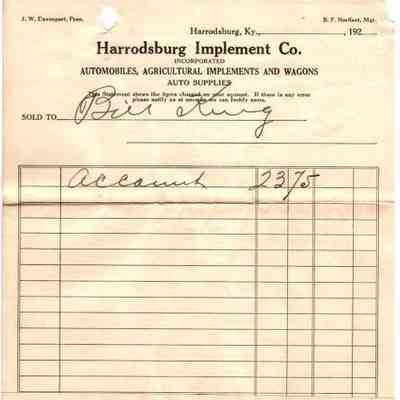 J. W. Davenport, Pres.
B. F. Norfleet, Mgr.
Harrodsburg, Ky., 192
Harrodsburg Implement Co.
INCORPORATED
AUTOMOBILES, AGRICULTURAL IMPLEMENTS AND WAGONS
AUTO SUPPLIES
This Statement shows the items charged to your account. If there is any error
please notify us at once so we can rectify same.
SOLD TO Bill King
Account 23 75